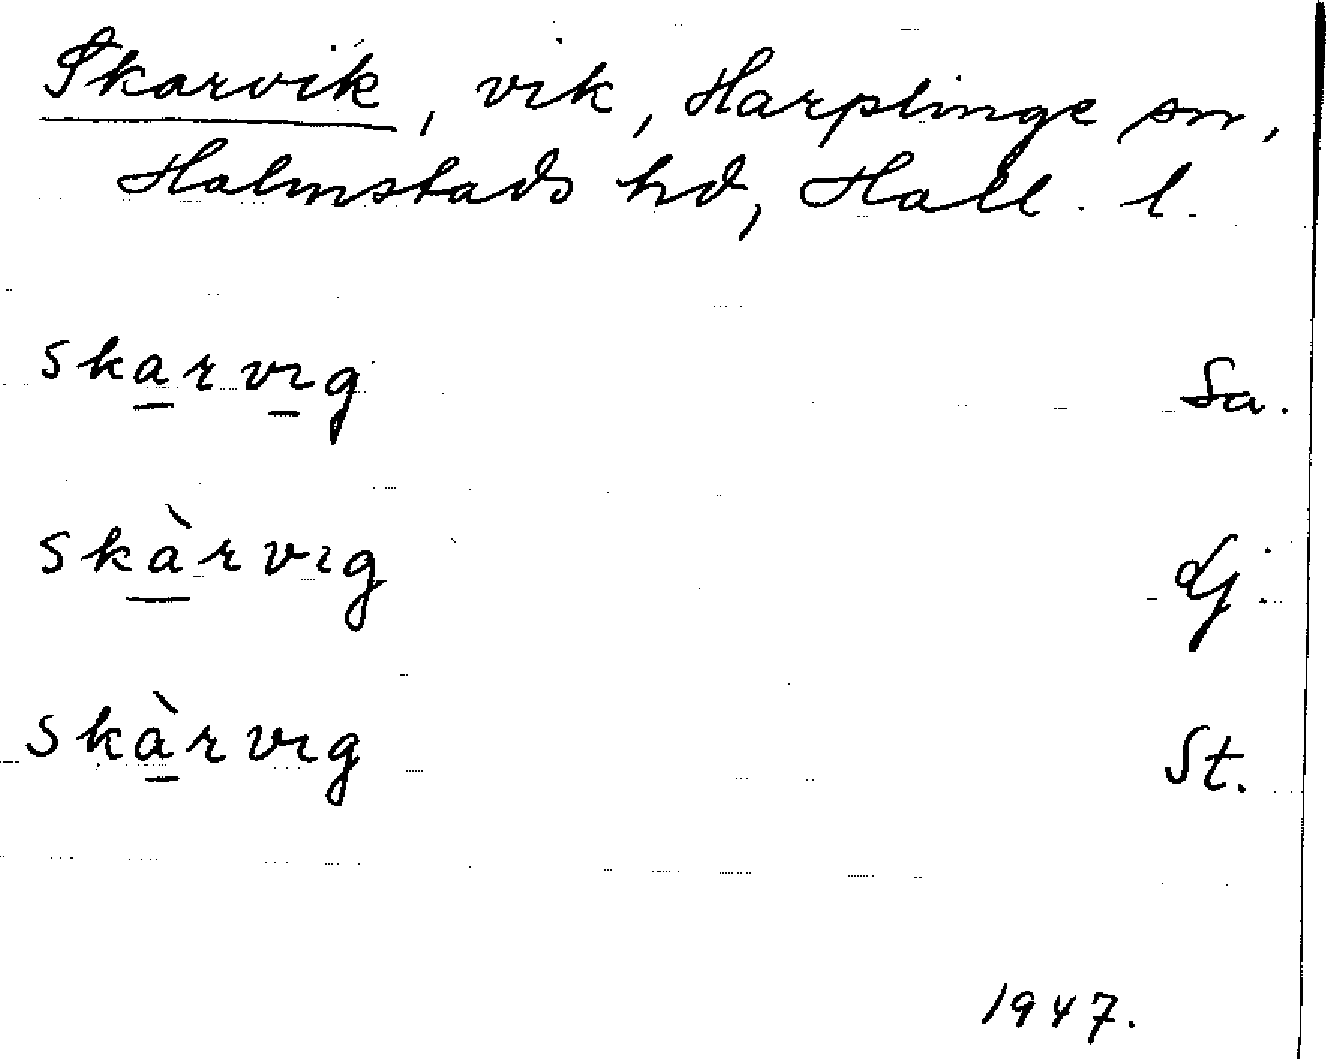 Skarvik, vik, Harplinge sn,
Halmstads hd, Hall. l.
skarvıg Sa.
skàrvıg Lj.
skàrvıg St.
1947.